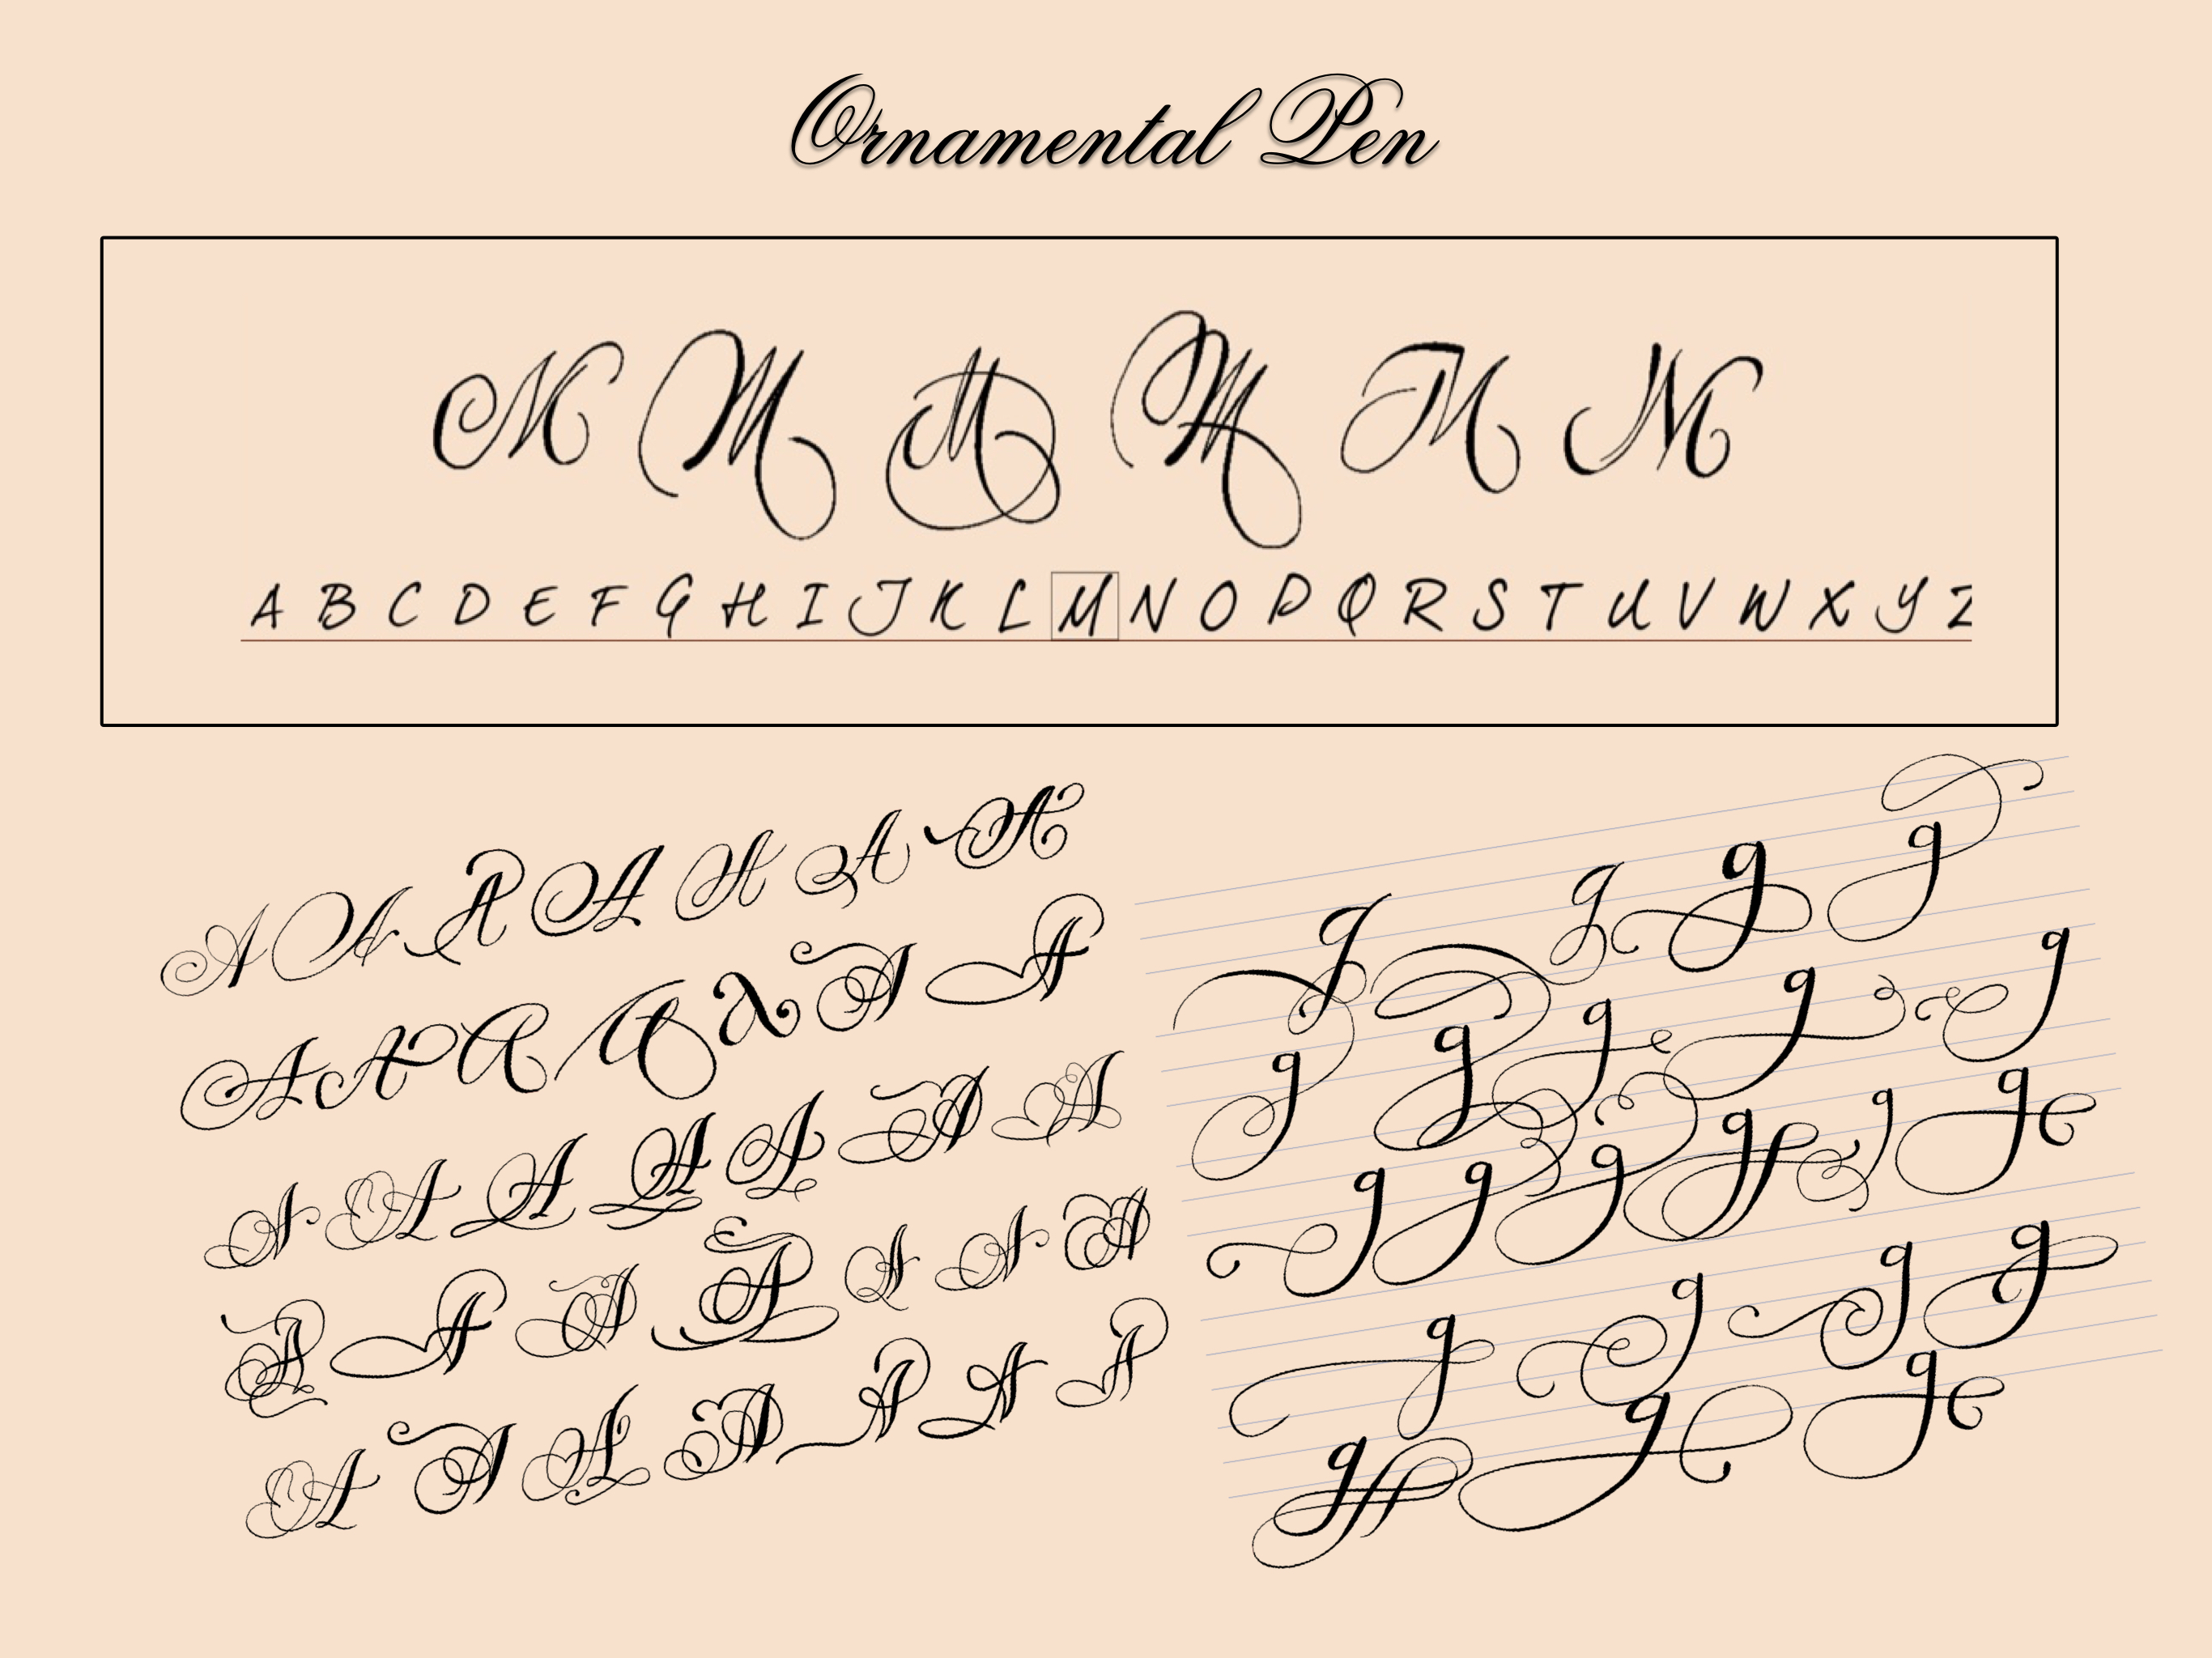 Ornamental Pen
M M M M M M
A B C D E F G H I J K L M N O P Q R S T U V W X Y Z
A A A A A A A
A A A A A A A
A A A A A A A
A A A A A A A
A A A A A A A
g g g g
g g g g g
g g g g g g
g g g g
g g g